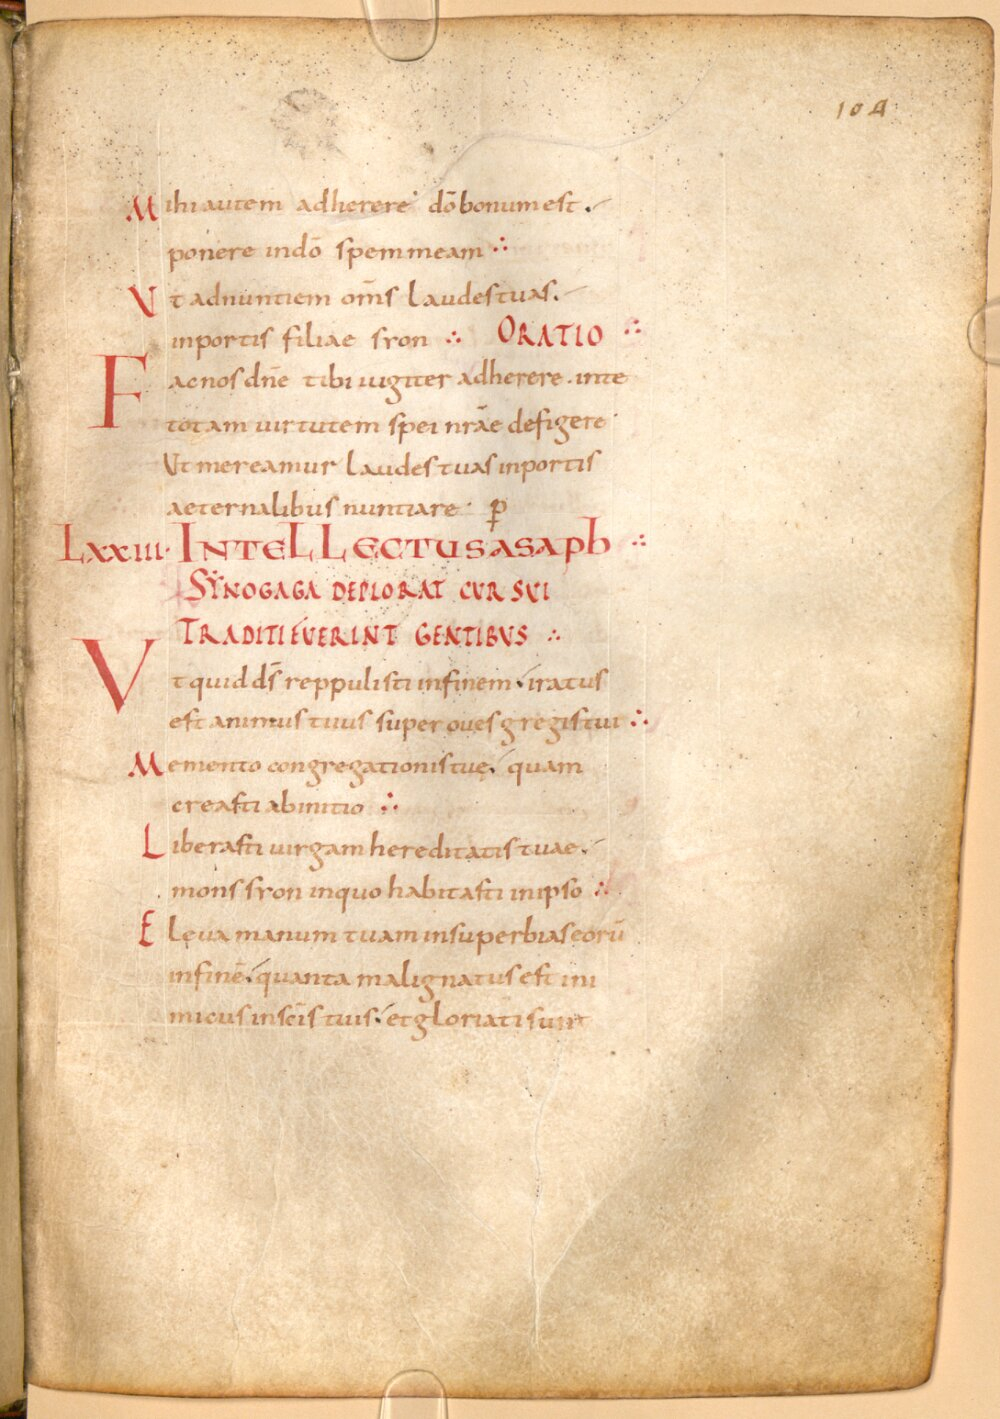 104
Mihi autem adherere dō bonum est.
ponere in dō spem meam ∴
Ut adnuntiem om̄s laudes tuas.
in portis filiae syon ∴ ORATIO ∴
Fac nos dn̄e tibi iugiter adherere. in te
totam uirtutem spei nr̄ae defigere
Ut mereamur laudes tuas in portis
aeternalibus nuntiare
LXXIII. INTELLECTUS ASAPH ∴
SYNOGAGA DEPLORAT CUR SUI
TRADITI FUERINT GENTIBUS ∴
Ut quid ds̄ reppulisti in finem. iratus
est animus tuus super oues gregis tui ∴
Memento congregationis tuę. quam
creasti ab initio ∴
Liberasti uirgam hereditatis tuae.
mons syon in quo habitasti in ipso ∴
Eleua manum tuam in superbias eorū
in finē. quanta malignatus est ini
micus in sc̄is tuis. et gloriati sunt